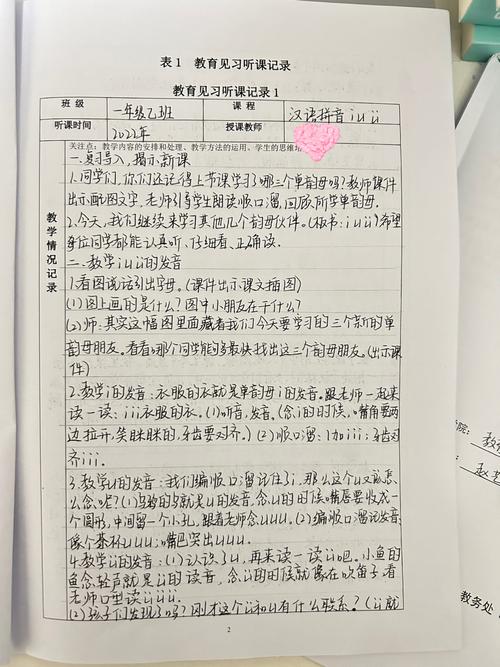 表1 教育见习听课记录
教育见习听课记录1
班级 一年级乙班 课程 汉语拼音 i u ü
听课时间 2022年 授课教师
关注点：教学内容的安排和处理、教学方法的运用、学生的思维培
教学情况记录
一.复习导入，揭示新课
1.同学们，你们还记得上节课学习了哪三个单韵母吗？教师课件
出示配图文字，老师引导学生朗读顺口溜，回顾所学单韵母。
2.今天，我们继续来学习其他几个韵母伙伴。（板书：i u ü）希望
每位同学都能认真听、仔细看、正确读。
二.教学 i u ü 的发音
1.看图说话引出字母。（课件出示课文插图）
(1)图上画的是什么？图中小朋友在干什么？
(2)师：其实这幅图里面藏着我们今天要学习的三个新的单
韵母朋友。看看哪个同学能够最快找出这三个韵母朋友。（出示课
件）
2.教学i的发音：衣服的衣就是单韵母i的发音。跟老师一起来
读一读：i i i 衣服的衣。(1)听音，发音。（念i的时候，嘴角要两
边拉开，笑眯眯的，牙齿要对齐。）(2)顺口溜：1加i i i；牙齿对
齐 i i i.
3.教学u的发音：我们编顺口溜记住了i，那么这个u又该怎
么念呢？(1)乌鸦的乌就是u的发音，念u的时候，嘴唇要收成一
个圆形，中间留一个小孔，跟着老师念 u u u. (2)编顺口溜记发音：
像个茶杯 u u u；嘴巴突出 u u u.
4.教学ü的发音：(1)认识了u，再来读一读ü吧。小鱼的
鱼念轻声就是ü的读音，念ü的时候就像在吹笛子，看
老师口型读 ü ü ü.
(2)孩子们发现了吗？刚才这个ü和u有什么联系？（ü就
2
院：
教务处